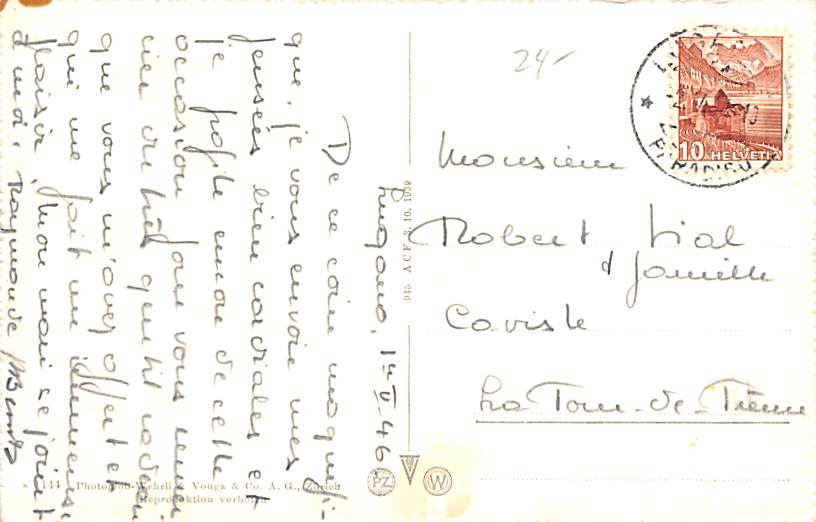 Lugano, 1er V 46.
De ce coin magnifi-
que, je vous envoie mes
pensées bien cordiales et
je profite encore de cette
occasion pour vous remer-
cier du très gentil cadeau
que vous m'avez offert et
qui me fait un immense
plaisir. Mon mari se joint
à moi. Raymonde
24
Monsieur
Robert Vial
& famille
Caviste
La Tour-de-Trême
945 A C F 3. 10. 1939
PARADISO
10 HELVETIA
144 Photoglob-Wehrli & Vouga & Co. A. G., Zürich
Reproduktion verboten
PZ
W